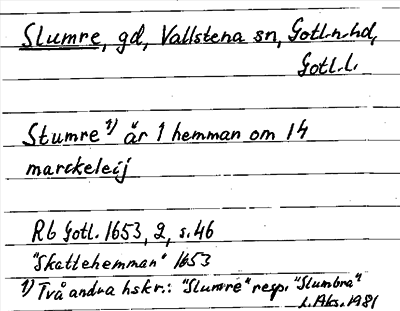 Slumre, gd, Vallstena sn, Gotl.n.hd,
Gotl.l.
Stumre 1) är 1 hemman om 14
marckeleij
Rb Gotl. 1653, 2, s.46
"Skattehemman" 1653
1) Två andra hskr.: "Slumre" resp. "Slumbra"
1981